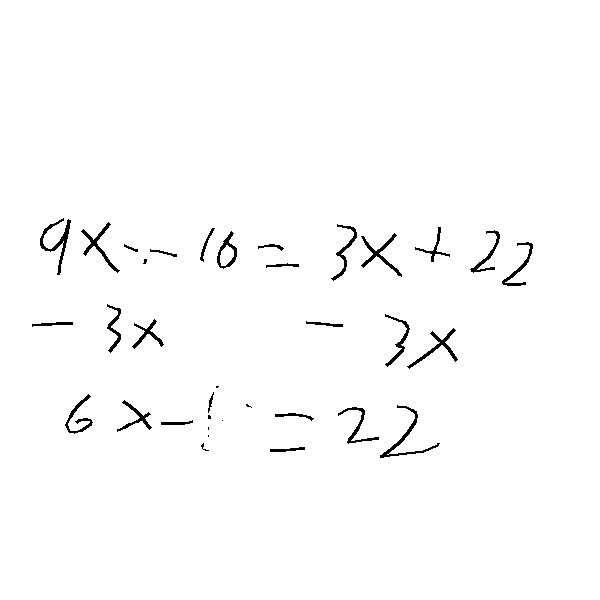 9x - 10 = 3x + 22
- 3x - 3x
6x - 1 = 22